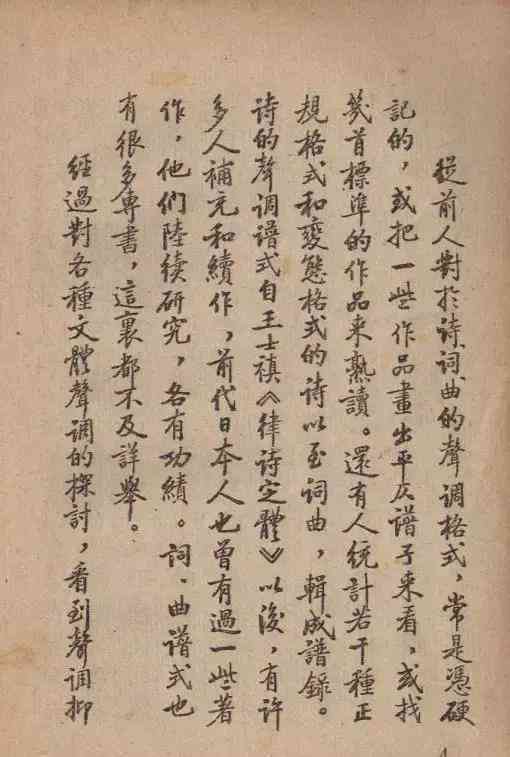 從前人對於诗、词曲的聲调格式，常是憑硬
記的，或把一些作品畫出平仄谱子来看，或找
幾首標準的作品来熟讀。還有人统計若干種正
規格式和變態格式的诗以至词曲，輯成譜錄。
诗的聲调谱式自王士禛《律诗定體》以後，有许
多人補充和續作，前代日本人也曾有過一些著
作，他們陸续研究，各有功績。词、曲谱式也
有很多專書，這裏都不及詳舉。
經過對各種文體聲调的探討，看到聲调抑